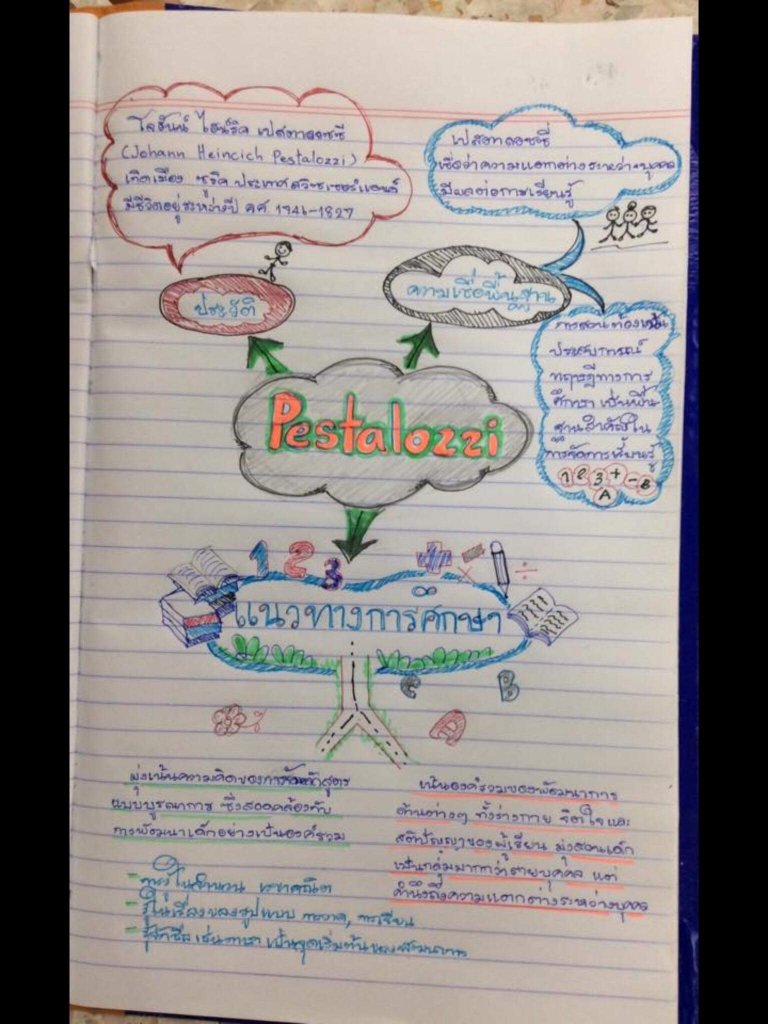 โจฮันน์ ไฮน์ริค เปสตาลอซซี
(Johann Heincich Pestalozzi)
เกิดเมือง ซูริค ประเทศสวิตเซอร์แลนด์
มีชีวิตอยู่ระหว่างปี คศ 1746-1827
ประวัติ
เปสตาลอซซี่
เชื่อว่าความแตกต่างระหว่างบุคคล
มีผลต่อการเรียนรู้
ความเชื่อพื้นฐาน
การสอนต้องเน้น
ประสบการณ์
ทฤษฎีทางการ
ศึกษา เป็นพื้น
ฐานสำคัญใน
การจัดการเรียนรู้
1 2 3 + - B
A
Pestalozzi
1 2 3 + - × ÷
แนวทางการศึกษา
C B
A
มุ่งเน้นความคิดของการจัดหลักสูตร
แบบบูรณาการ ซึ่งสอดคล้องกับ
การพัฒนาเด็กอย่างเป็นองค์รวม
เน้นองค์รวมของพัฒนาการ
ด้านต่างๆ ทั้งร่างกาย จิตใจและ
สติปัญญาของผู้เรียน มุ่งสอนเด็ก
เป็นกลุ่มมากกว่ารายบุคคล แต่
คำนึงถึงความแตกต่างระหว่างบุคคล
จำนวน เรขาคณิต
รู้ในเรื่องของรูปแบบ การวาด, การเขียน
เช่นภาษา เป็นจุดเริ่มต้นของ